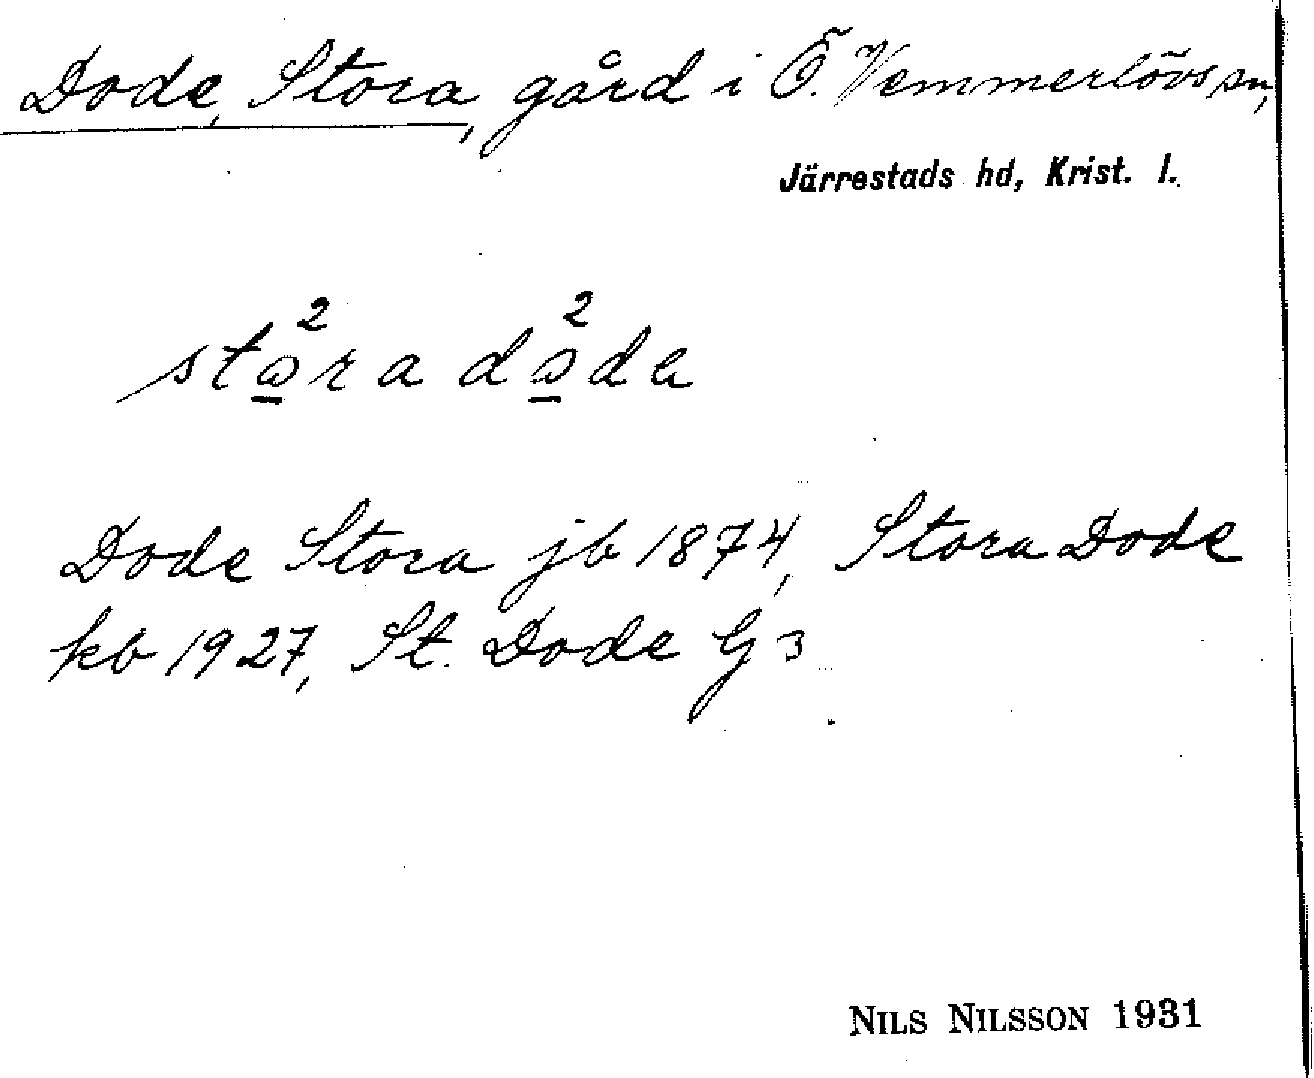 Dode, Stora, gård i Ö. Vemmerlövs sn,
Järrestads hd, Krist. l.
Dode Stora jb 1874, Stora Dode
kb 1927, St. Dode G 3
NILS NILSSON 1931